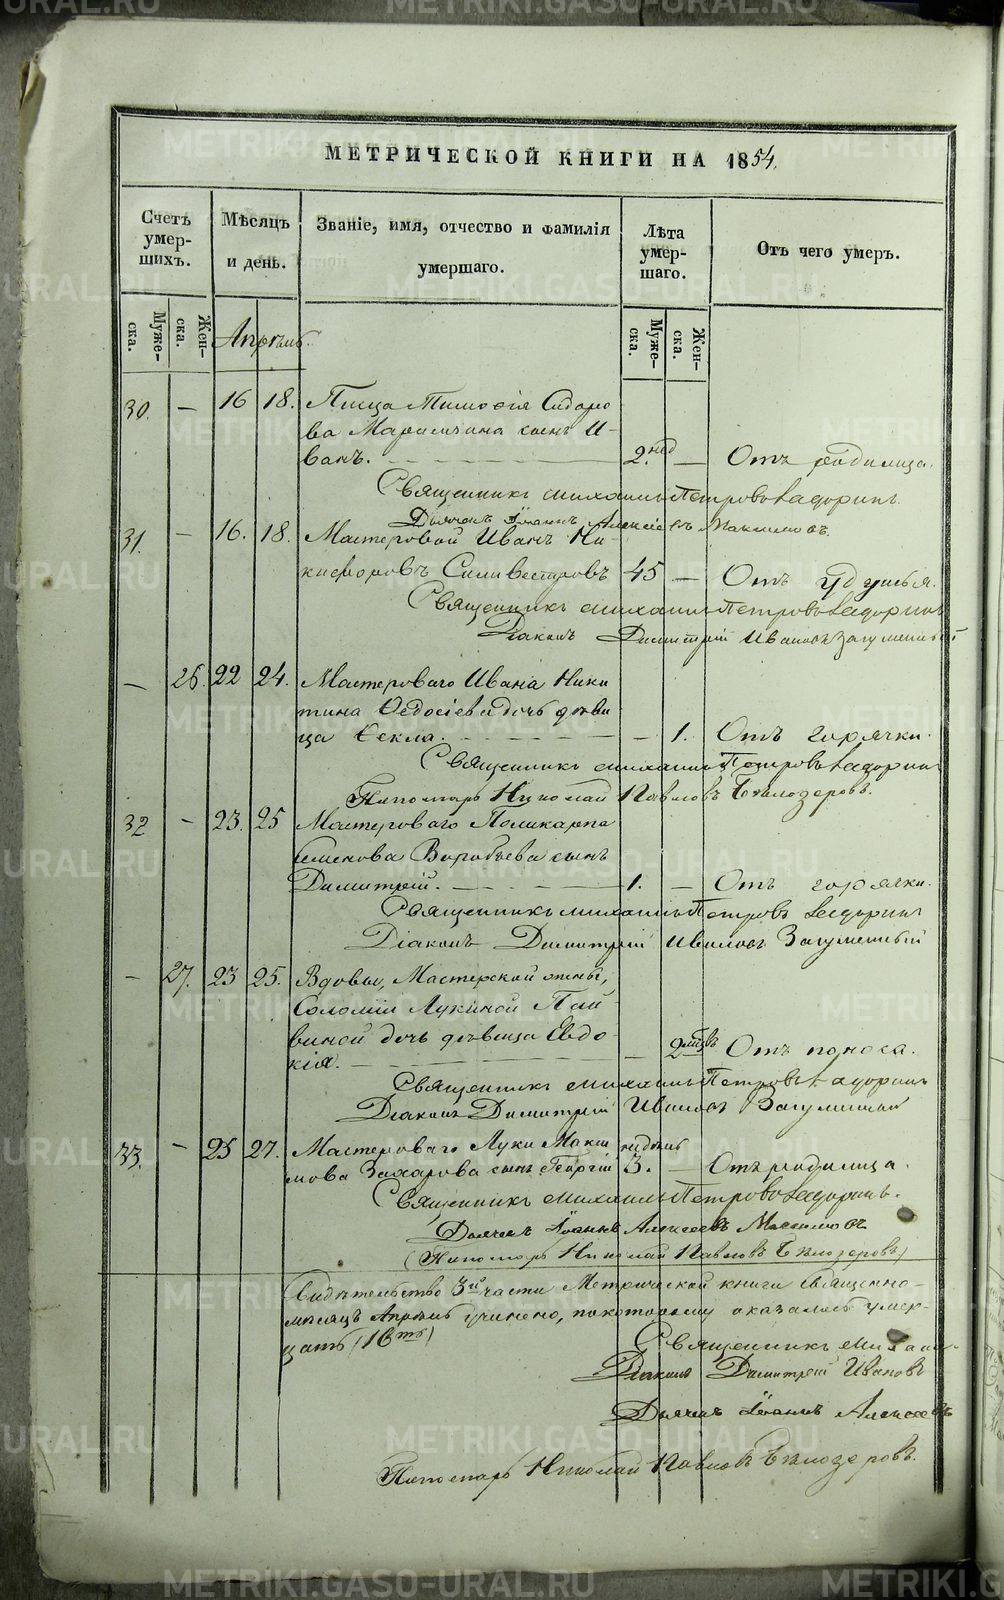 МЕТРИЧЕСКОЙ КНИГИ НА 1854.
Счетъ умер-шихъ.
Мѣсяцъ и день.
Званіе, имя, отчество и фамилія умершаго.
Лѣта умер-шаго.
Отъ чего умеръ.
Муже-ска.
Жен-ска.
Муже-ска.
Жен-ска.
Апрѣль.
30. — 16 18. Писца Тимофія Сидоро
ва сынъ И-
ванъ. 2. нед — Отъ родимца.
Священникъ Михаилъ Петровъ
Дьячекъ Іоаннъ Алексѣевъ Максимовъ.
31. — 16. 18. Мастеровой Иванъ Ни-
кифоровъ Силивестровъ 45 — Отъ удушья.
Священникъ Михаилъ Петровъ
Діаконъ Димитрій Ивановъ Загуменный
— 26. 22 24. Мастероваго Ивана Ники
тина Ѳедосіева дочь дѣви
ца Ѳекла. — 1. Отъ горячки.
Священникъ Михаилъ Петровъ
Пономарь Николай Павловъ Бѣлозеровъ.
32 — 23. 25 Мастероваго Поликарпа
Семенова Воробьева сынъ
Димитрій. 1. — Отъ горячки.
Священникъ Михаилъ Петровъ
Діаконъ Димитрій Ивановъ Загуменный
— 27. 23 25. Вдовы, Мастерской жены,
Соломіи Лукиной
дочь дѣвица Евдо-
кія. — 2 мѣсѣ Отъ поноса.
Священникъ Михаилъ Петровъ
Діаконъ Димитрій Ивановъ Загуменный
33. — 25 27. Мастероваго Луки Макси недѣль
мова Захарова сынъ Георгій 3. — Отъ родимца.
Священникъ Михаилъ Петровъ
Дьячекъ Іоаннъ Алексѣевъ Максимовъ
Пономарь Николай Павловъ Бѣлозеровъ
Свидѣтельство 3й части Метрической книги Священно-
мѣсяцъ Апрѣль учинено, по которому оказалось умер-
Священникъ Михаи-
Діаконъ Димитрій Ивановъ
Дьячекъ Іоаннъ Алексѣевъ
Пономарь Николай Павловъ Бѣлозеровъ.
METRIKI.GASO-URAL.RU